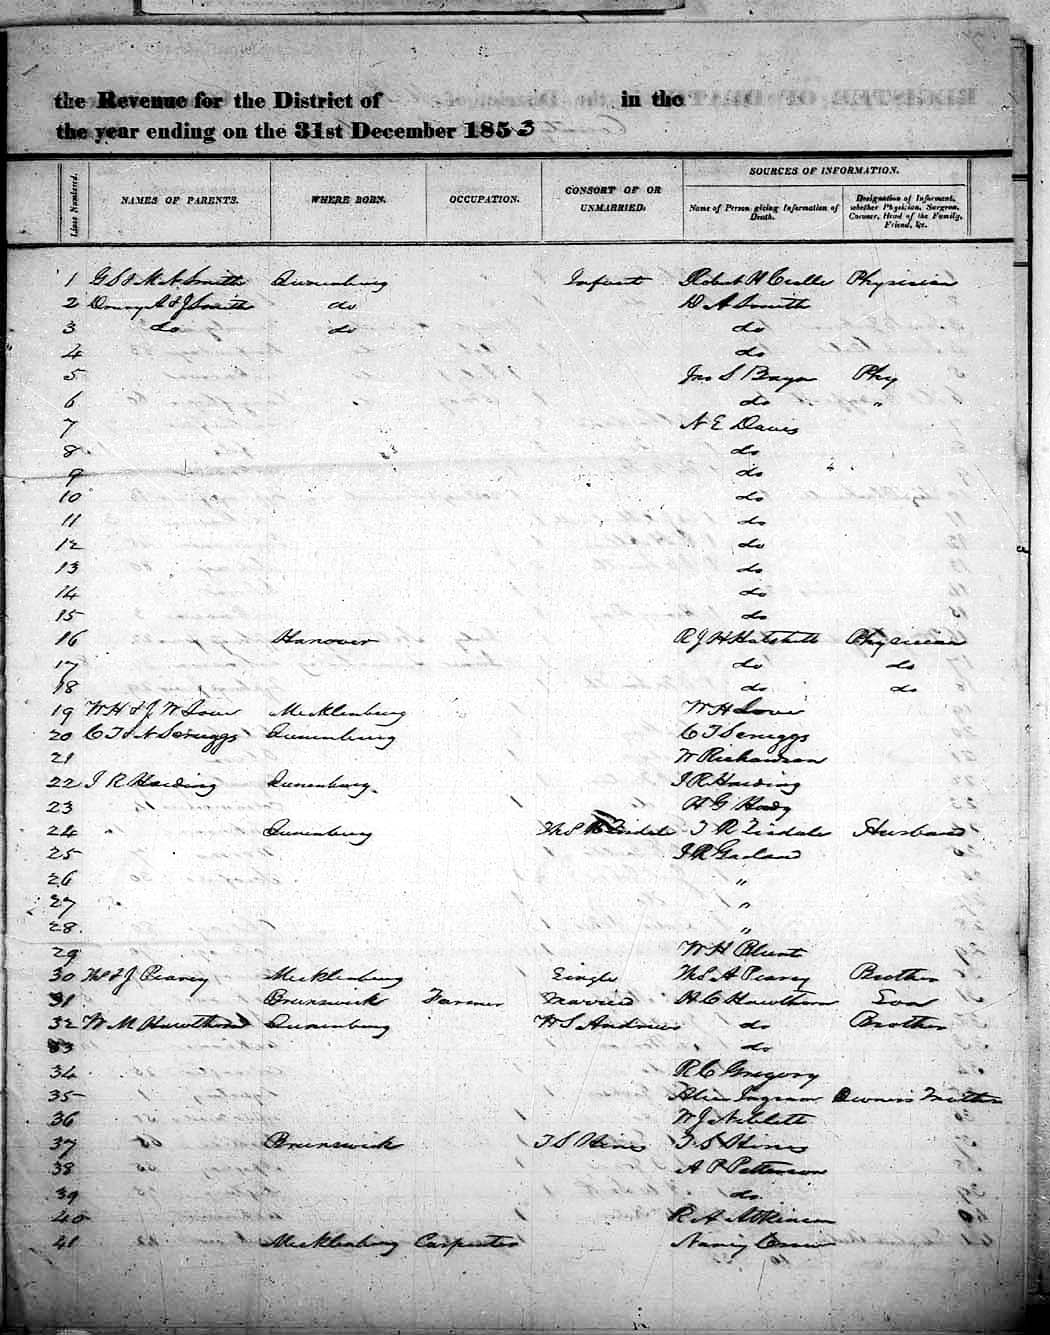 the Revenue for the District of in the
the year ending on the 31st December 1853
Lines Numbered. NAMES OF PARENTS. WHERE BORN. OCCUPATION. CONSORT OF OR UNMARRIED. SOURCES OF INFORMATION.
Name of Person giving Information of Death. Designation of Informant, whether Physician, Surgeon, Coroner, Head of the Family, Friend, &c.
1 G S & M A Smith Lunenburg Infant Robert H Physician
2 A & J Smith do D A Smith
3 do do do
4 do
5 Jno S Phy
6 do "
7 N E Davis
8 do
9 do "
10 do
11 do
12 do
13 do
14 do
15 do
16 Hanover R J H Hatchett Physician
17 do do
18 do do
19 W H & J W Mecklenburg W H
20 C T & N Scruggs Lunenburg C T Scruggs
21 W Richardson
22 J R Harding Lunenburg. J R Harding
23 H G
24 Lunenburg Tisdale T R Tisdale Husband
25 J R Garland
26 "
27 "
28. "
29 W H Blunt
30 Thos & J Mecklenburg Single Thos A Brother
31 Brunswick Farmer Married H C Hawthorn Son
32 W M Hawthorn Lunenburg W S Andrews do Brother
33 do
34 R C Gregory
35 Ingram Owner's Mother
36 W J Niblett
37 Brunswick T S Hines T S Hines
38 A P Patterson
39 do
40 R A Atkinson
41 Mecklenburg Carpenter Nancy